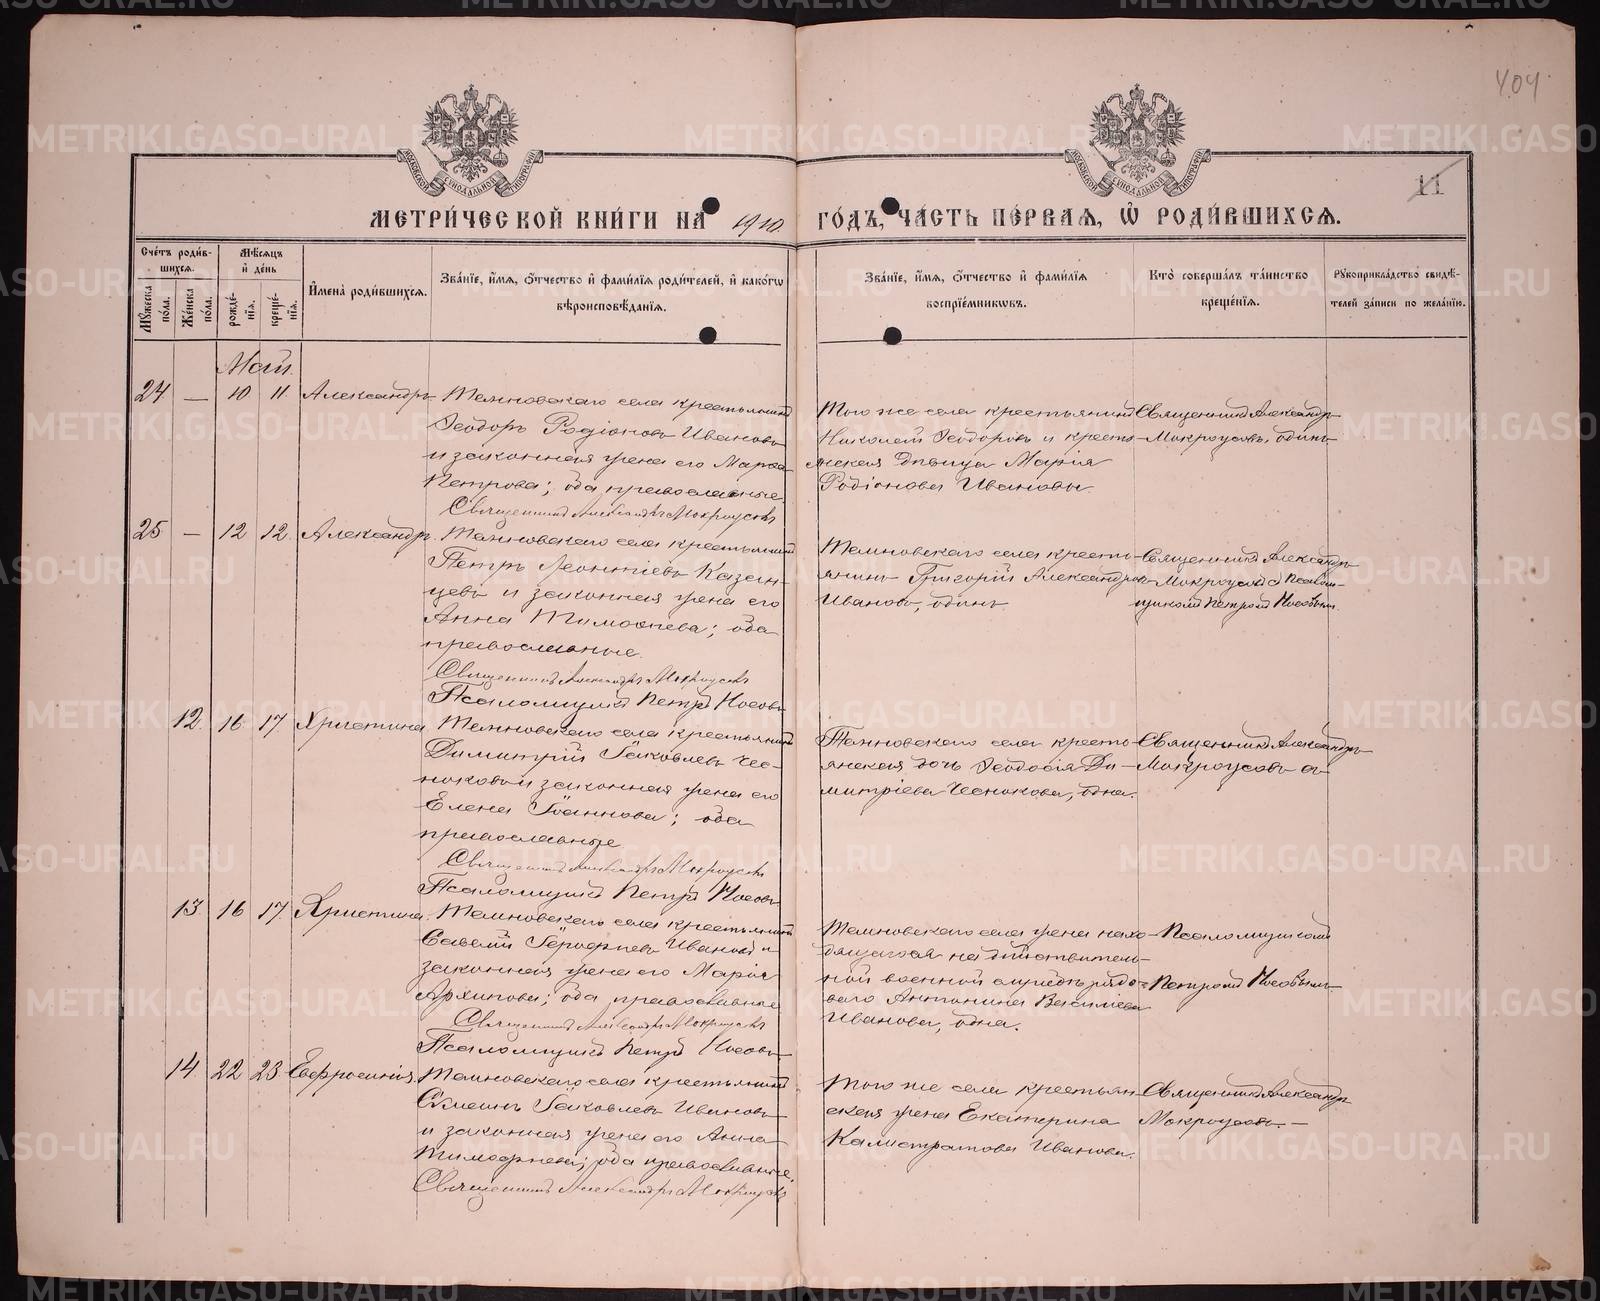 404
11
МЕТРИ́ЧЕСКОЙ КНИ́ГИ НА 1910 ГО́ДЪ, ЧА́СТЬ ПЕ́РВАЯ, Ѽ РОДИ́ВШИХСЯ.
Сче́тъ роди́вшихся.
Мꙋ́жеска по́ла.
Же́нска по́ла.
Мѣ́сяцъ и҆ де́нь
рожде́нїя.
креще́нїя.
И҆мена̀ роди́вшихся.
Зва́нїе, и҆́мя, ѻ҆́тчество и҆ фами́лїя роди́телей, и҆ како́гѡ
вѣроисповѣ́данїя.
Зва́нїе, и҆́мя, ѻ҆́тчество и҆ фами́лїя
воспрїе́мникѡвъ.
Кто̀ соверша́лъ та́инство
креще́нїя.
Рꙋкоприкла́дство свидѣ́-
телей за́писи по жела́нїю.
Май.
24 — 10 11 Александръ
Темновскаго села крестьянинъ
Ѳеодоръ Родіоновъ Ивановъ
и законная жена его Марѳа
Петрова; оба православные
Священникъ Александръ Мокроусовъ
Того же села крестьянинъ
Николай Ѳеодоровъ и кресть-
янская дѣвица Марія
Родіонова Ивановы.
Священникъ Александръ
Мокроусовъ, одинъ
25 — 12 12 Александръ.
Темновскаго села крестьянинъ
Петръ Леонтіевъ Казан-
цевъ и законная жена его
Анна Тимоѳеева; оба
православные.
Священникъ Александръ Мокроусовъ
Псаломщикъ Петръ Носовъ
Темновскаго села кресть-
янинъ Григорій Александровъ
Ивановъ, одинъ
Священникъ Александръ
Мокроусовъ съ Псалом-
щикомъ Петромъ Носовымъ.
12. 16 17 Христина
Темновскаго села крестьянинъ
Димитрій Іаковлевъ Чес-
ноковъ и законная жена его
Елена Іоаннова; оба
православные
Священникъ Александръ Мокроусовъ
Псаломщикъ Петръ Носовъ
Темновскаго села кресть-
янская дочь Ѳеодосія Ди-
митріева Чеснокова, одна.
Священникъ Александръ
Мокроусовъ
13 16 17 Христина.
Темновскаго села крестьянинъ
Савелій Іероѳеевъ Ивановъ и
законная жена его Марія
Архипова; оба православные
Священникъ Александръ Мокроусовъ
Псаломщикъ Петръ Носовъ
Темновскаго села жена нахо-
дящагося на дѣйствитель-
ной военной службѣ рядо-
вого Антонина Василіева
Иванова, одна.
Псаломщикомъ
Петромъ Носовымъ.
14 22 23 Евфросинія
Темновскаго села крестьянинъ
Сѷмеонъ Іаковлевъ Ивановъ
и законная жена его Анна
Тимофѣева; оба православные.
Священникъ Александръ Мокроусовъ
Того же села крестьян-
ская жена Екатерина
Калистратова Иванова.
Священникъ Александръ
Мокроусовъ. —
METRIKI.GASO-URAL.RU